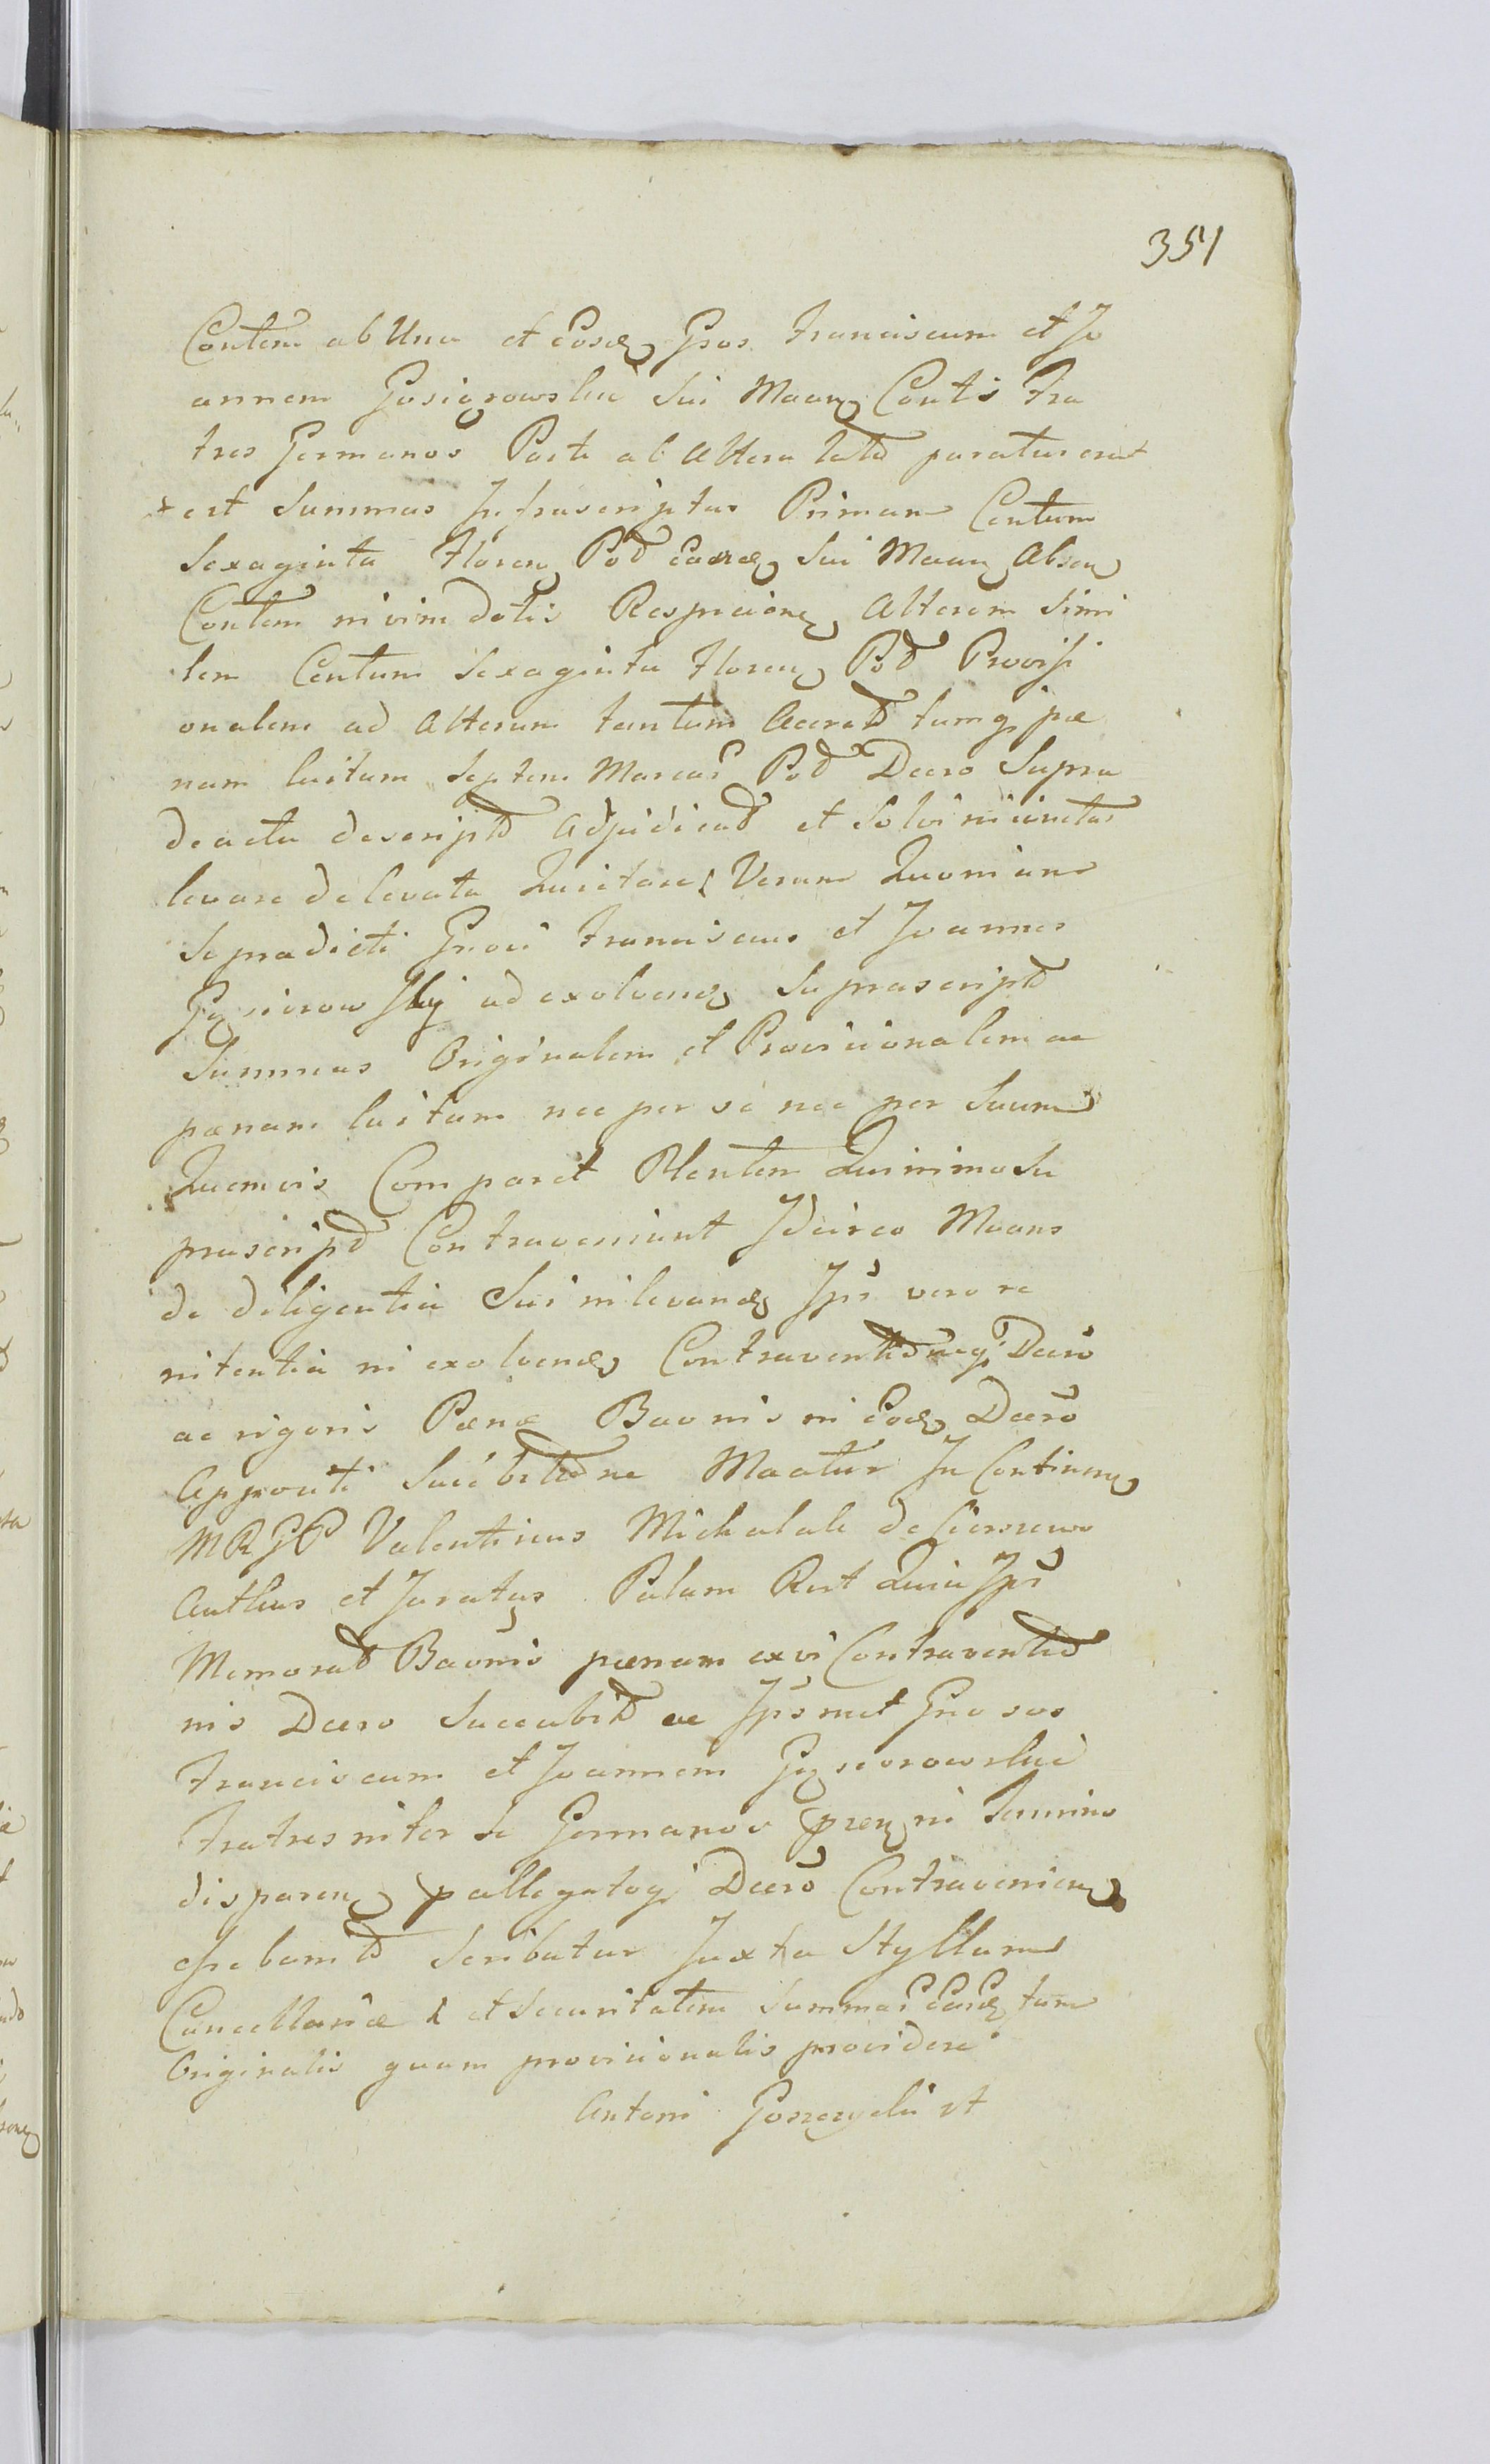 351
Contem ab Una et Eosd Gsos Franciscum et Jo
annem Gosiorowskie Sui Maan Contis Fra
tres Germanos Parte ab Altera lato paratus erat
est Summas Infrascriptas Primam Centum
Sexaginta Floren Pod Sui Maan Absen
Contem in vim dotis Respicien Alteram Simi
lem Centum Sexaginta Floren Pod Provisi
onalem ad Alterum tantum Accrad tumq pæ
nam luitam Septem Marcar Pod Dcero Supra
de actu descripto Adjudicad et Solvi iniunctas
levare de levata Quietare Verum Quoniam
Se pradicti Gnosi Franciscus et Joannes
Gąsiorowsky ad exolvend Supra script
Summas Originalem et Provisionalem ac
pænam luitam nec per se nec per Suum
Quemvis Comparet Plentem Quinimo Su
prascripd Contraveniunt Idcirco Maans
de diligentia Sui in levand Ips vero re
nitentia in exolvend Decro
ac rigoris Pænæ Baonis in Eod Decro
Approuti Succubit ne Maatur In Continen
MRGP Valentinus Michalak de
Authus et Juratus Palam Rect Quia Ips
Memorad Baonis pænam ex vi Contraventio
nis Decro Succubit ac Ipsmet Gnosos
Franciscum et Joannem Gąsiorowskie
Fratres inter Se Germanos pren in Termino
disparen p allegatoq Decro Contravenien
Scribatur Juxta Styllum
Cancellariæ & et Securitatem Summar Earud tam
Originalis quam provisionalis providere
Antoni